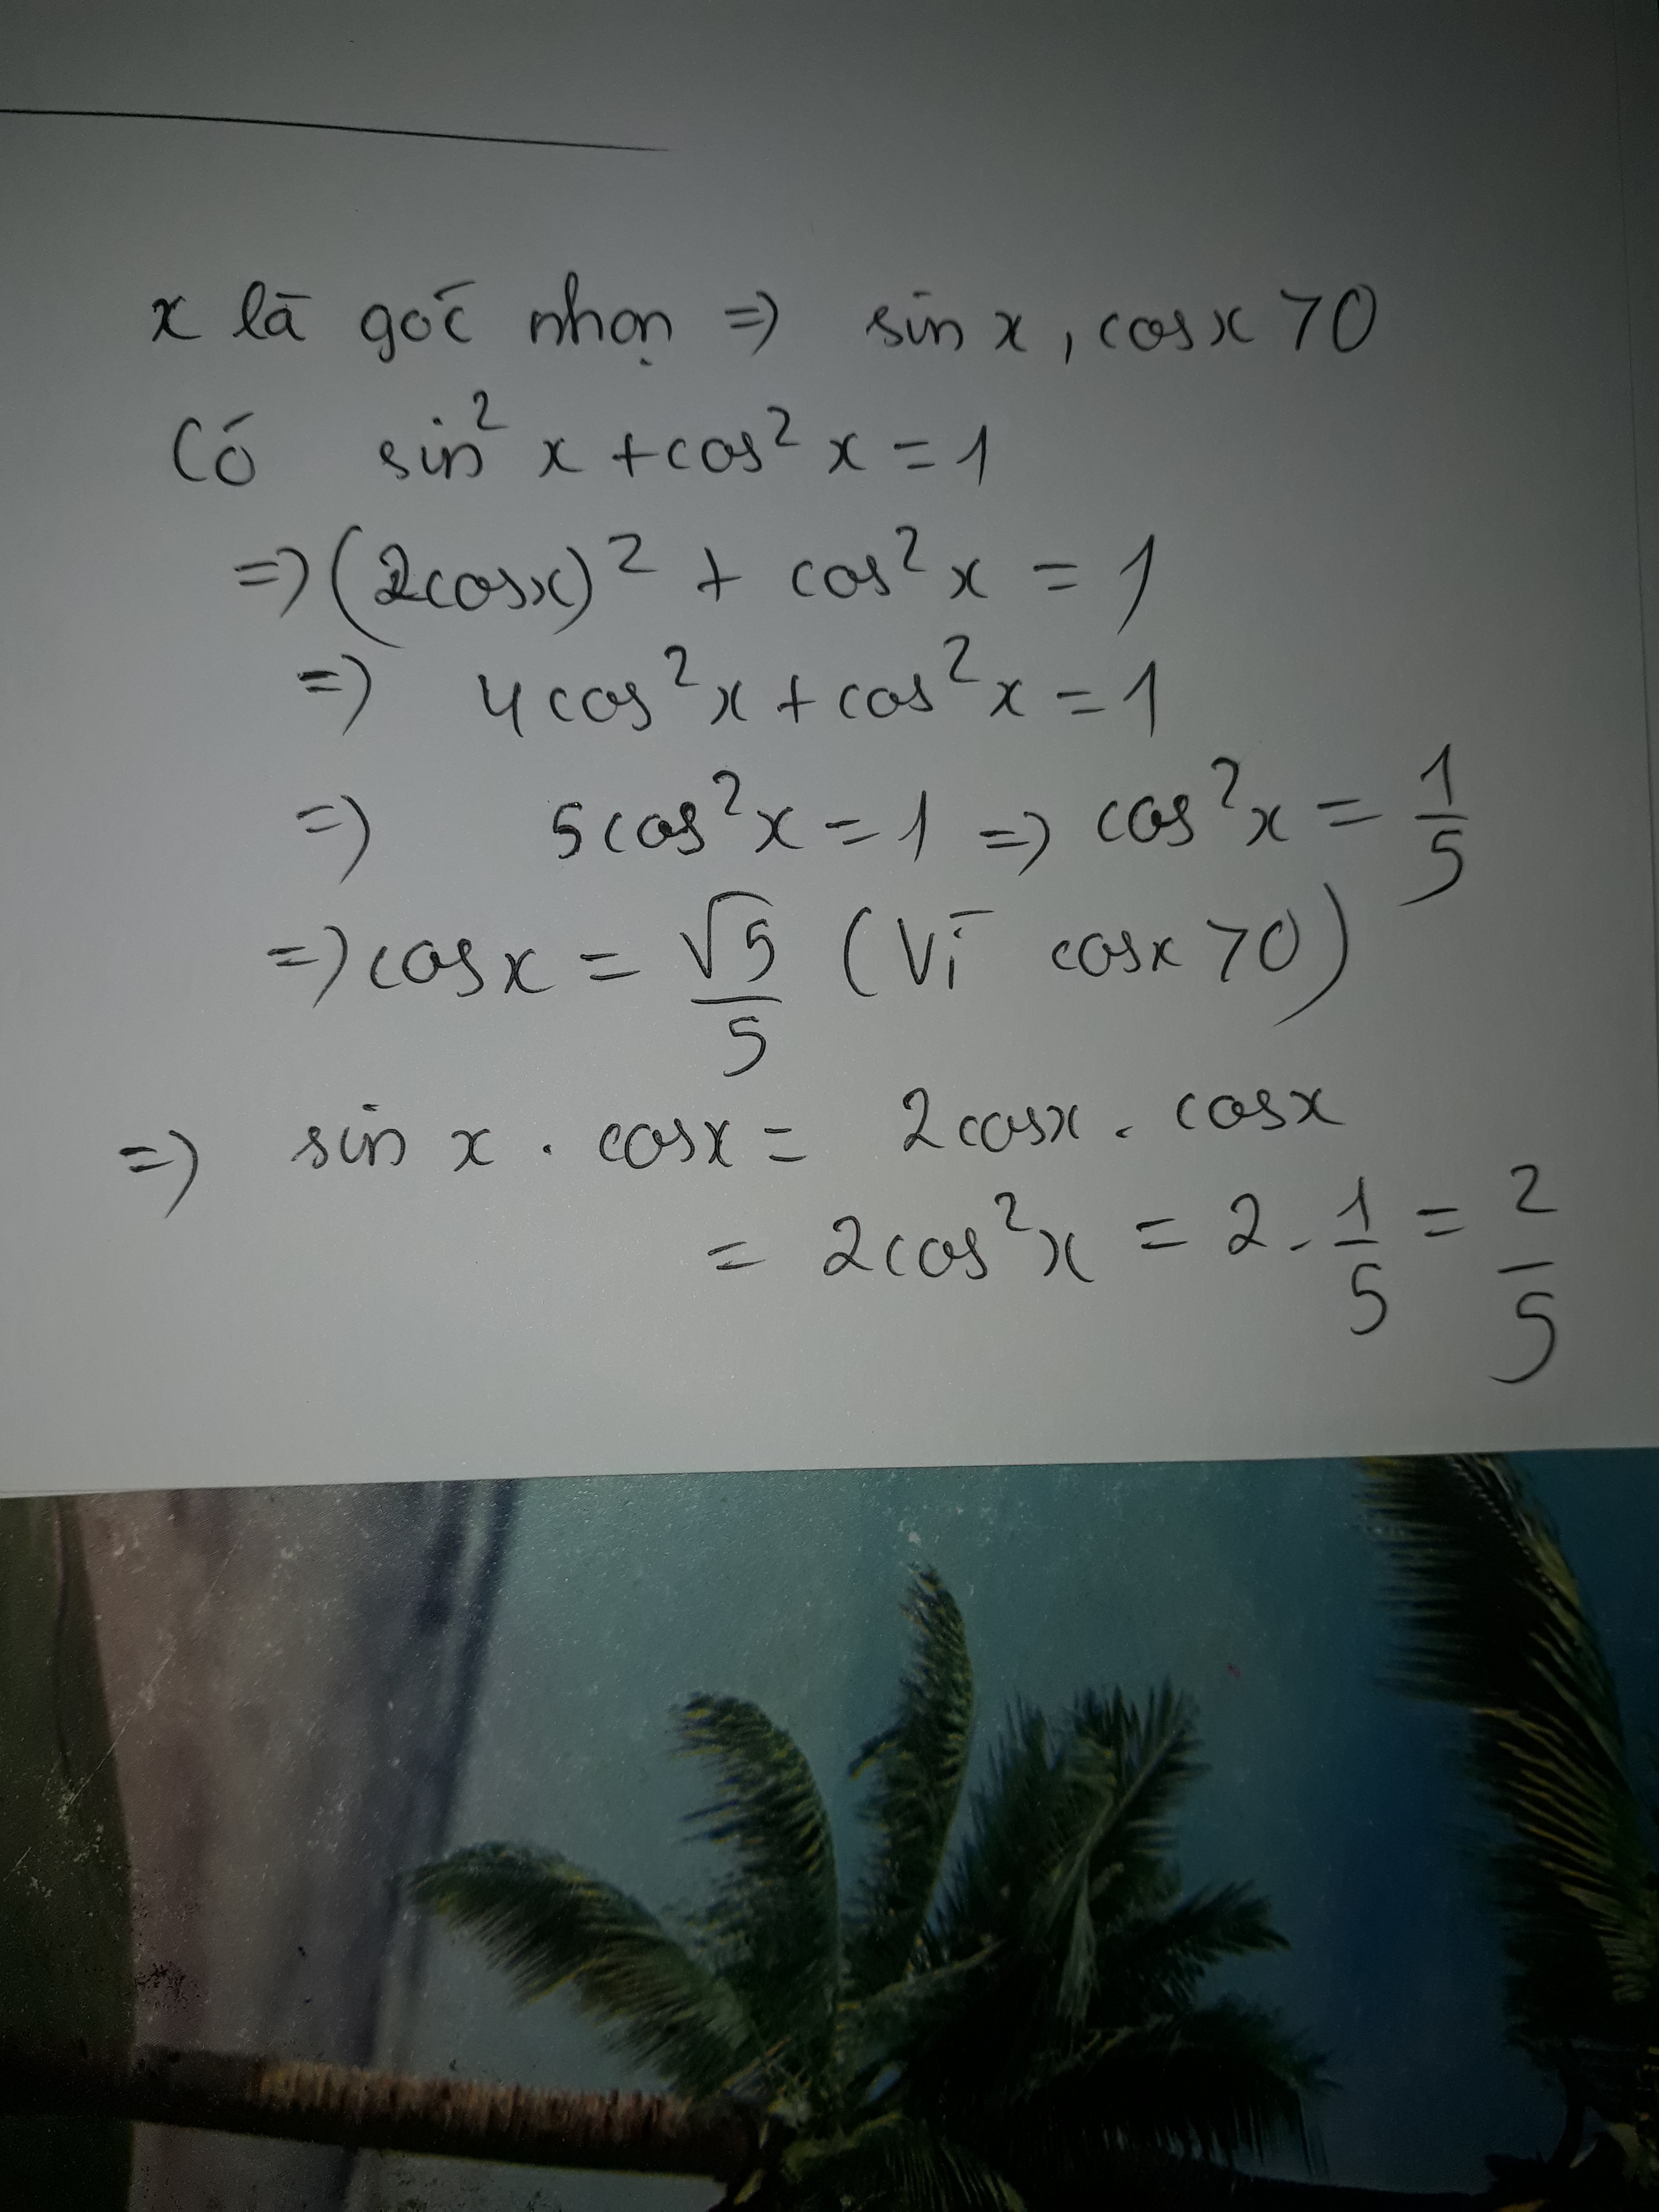 x là góc nhọn => sin x, cosx > 0
Có sin² x + cos² x = 1
=> (2cosx)² + cos² x = 1
=> 4cos² x + cos² x = 1
=> 5cos² x = 1 => cos² x = 1/5
=> cosx = √5/5 (Vì cosx > 0)
=> sin x . cosx = 2cosx . cosx
= 2cos² x = 2 . 1/5 = 2/5